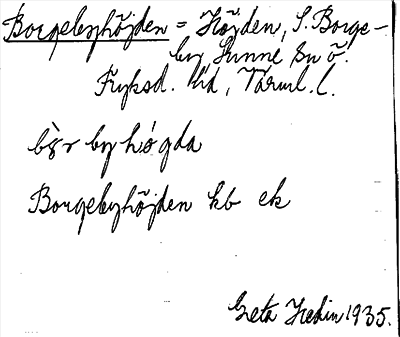 Borgebyhöjden = Höjden, S. Borge-
by, Sunne sn ö.
Fryksd. hd, Värml. l.
bòr by hó gda
Borgebyhöjden kb ek
Greta Hedin 1935.